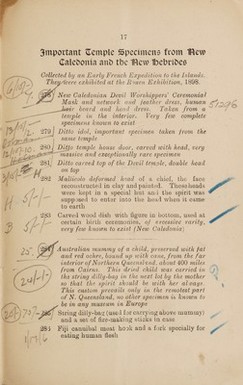 17
Important Temple Specimens from New
Caledonia and the New Hebrides
Collected by an Early French Expedition to the Islands.
They were exhibited at the Rouen Exhibition, 1898.
New Caledonian Devil Worshippers' Ceremonial
Mask and network and feather dress, human
hair board and hand dress. Taken from a
temple in the interior. Very few complete
specimens known to exist
51296
279 Ditto idol, important specimen taken from the
same temple
280 Ditto temple house door, carved with head, very
massive and exceptionally rare specimen
281 Ditto carved top of the Devil temple, double head
on top
282 Mallicolo deformed head of a child, the face
reconstructed in clay and painted. These heads
were kept in a special hut and the spirit was
supposed to enter into the head when it came
to earth
5/-/-
283 Carved wood dish with figure in bottom, used at
certain birth ceremonies, of excessive rarity,
very few known to exist (New Caledonia)
B 5/-/-
284 Australian mummy of a child, preserved with fat
and red ochre, bound up with cane, from the far
interior of Northern Queensland, about 400 miles
from Cairns. This dried child was carried in
the string dilly-bag in the next lot by the mother
so that the spirit should be with her always.
This custom prevails only in the remotest part
of N. Queensland, no other specimen is known to
be in any museum in Europe
25
?
String dilly-bag (used for carrying above mummy)
and a set of fire-making sticks in case
Fiji cannibal meat hook and a fork specially for
eating human flesh